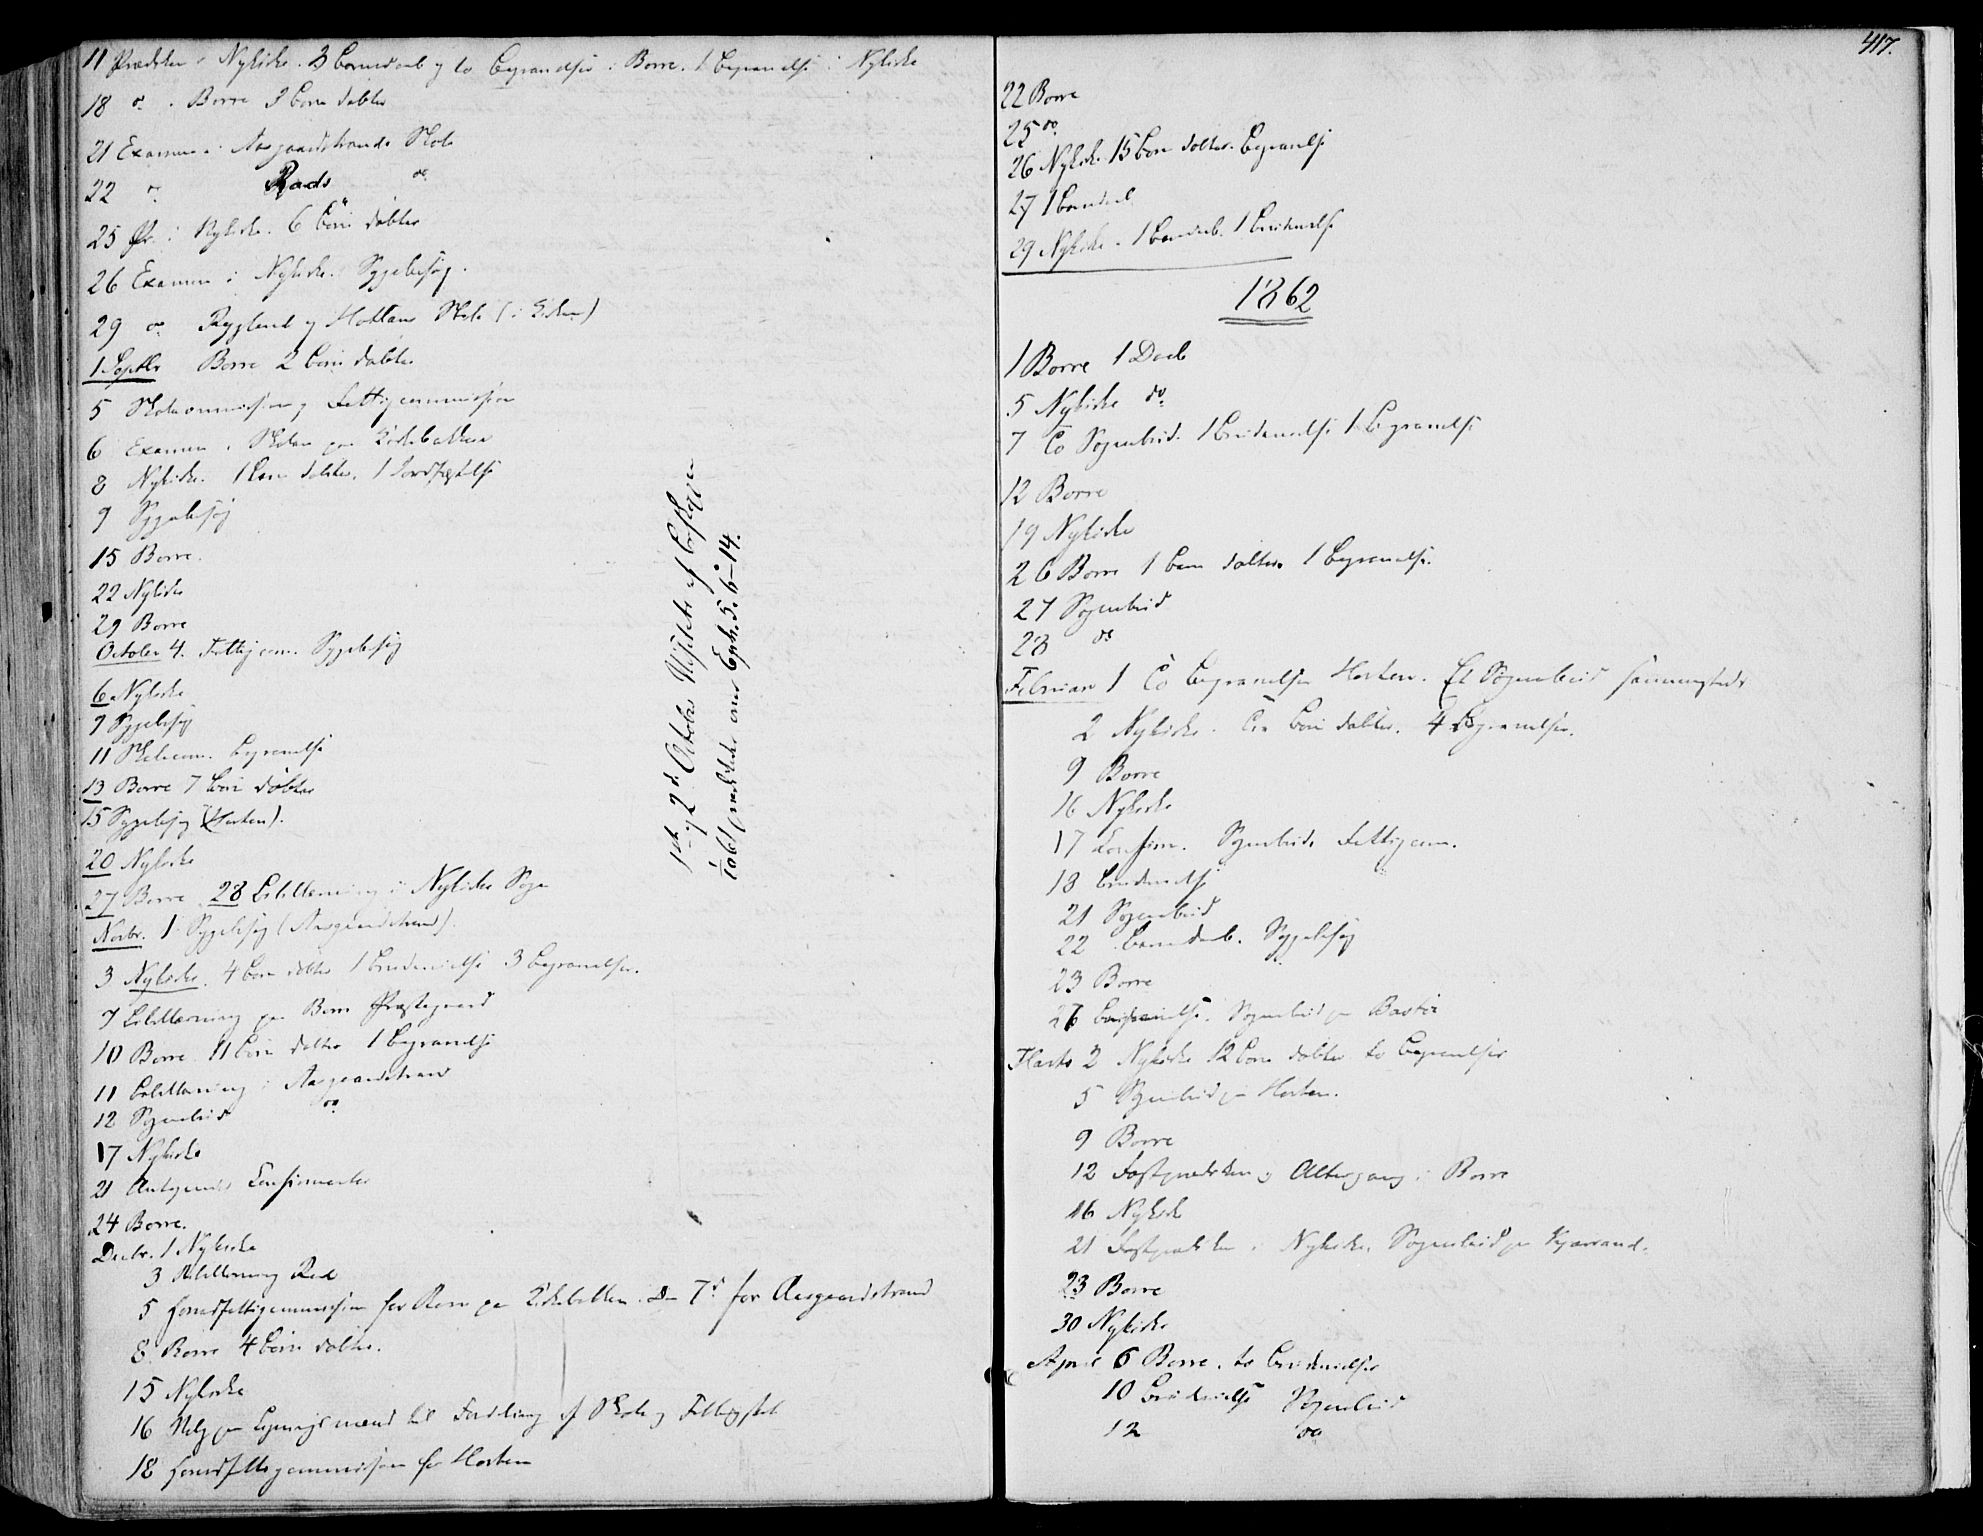 11 Prædiken i Nykirke. 3 Barnedaab og to Begravelser i Borre. 1 Begravelse i Nykirke
18 do i Borre 3 børn døbte
21 Examen i Aasgaardstrands Skole
22 do Rads do
25 Pr. i Nykirke. 6 børn døbte
26 Examen i Nykirke. Sygebesøg.
29 do Rygland og Skole (i
1 Septbr Borre 2 børn døbte
5 Skolecommission og Fattigcommission
6 Examen i Skolen paa Kirkebakken
8 Nykirke. 1 barn døbte, 1 Jordfæstelse
9 Sygebesøg
15 Borre.
22 Nykirke
29 Borre
October 4. Fattigcom. Sygebesøg
6 Nykirke
7 Sygebesøg
11 Skolecom. Begravelse
13 Borre 7 børn døbte
15 Sygebesøg (Horten).
20 Nykirke
27 Borre. 28 Bibellæsning i Nykirke Sogn
Novbr. 1 Sygebesøg (Aasgaardstrand).
3 Nykirke. 4 børn døbte 1 Brudevielse 3 Begravelser.
7 Bibellæsning paa Borre Præstegaard
10 Borre. 11 børn døbte 1 Begravelse
11 Bibellæsning i Aasgaardstrand
12 Sognebud do
17 Nykirke
21 Confirmanter
24 Borre.
Decbr. 1 Nykirke
3 Bibellæsning
5 Fattigcommission for Borre paa Kirkebakken. Den 7d for Aasgaardstrand
8 Borre 4 børn døbte.
15 Nykirke
16 Valg paa Ligningsmænd til Fordeling af Skole og Fattigskat
18 Fattigcommission for Horten
1ste og 2d October af Biskoppen
prædikede over Eph. 5. 6-14.
417.
22 Borre
25 do
26 Nykirke 15 børn døbte. Begravelse
27 1 Barnedaab
29 Nykirke. 1 Barnedaab. 1 Brudevielse
1862
1 Borre 1 Daab
5 Nykirke do
7 To Sognebud. 1 Brudevielse 1 Begravelse
12 Borre
19 Nykirke
26 Borre 1 barn døbtes 1 Begravelse.
27 Sognebud
28 do
Februar 1 To Begravelser Horten. Et Sognebud sammesteds
2 Nykirke. børn døbte. 4 Begravelser.
9 Borre
16 Nykirke
17 Confirm. Sognebud. Fattigcom.
18 Brudevielse
21 Sognebud
22 Barnedaab. Sygebesøg
23 Borre
26 Sognebud paa Bastø
Marts 2 Nykirke 12 børn døbte to Begravelser
5 Sognebud paa Horten.
9 Borre
12 Fasteprædiken og Altergang i Borre
16 Nykirke
21 Fasteprædiken i Nykirke. Sognebud paa
23 Borre
30 Nykirke
April 6 Borre. to Brudevielser
10 Brudevielse Sognebud
12 do